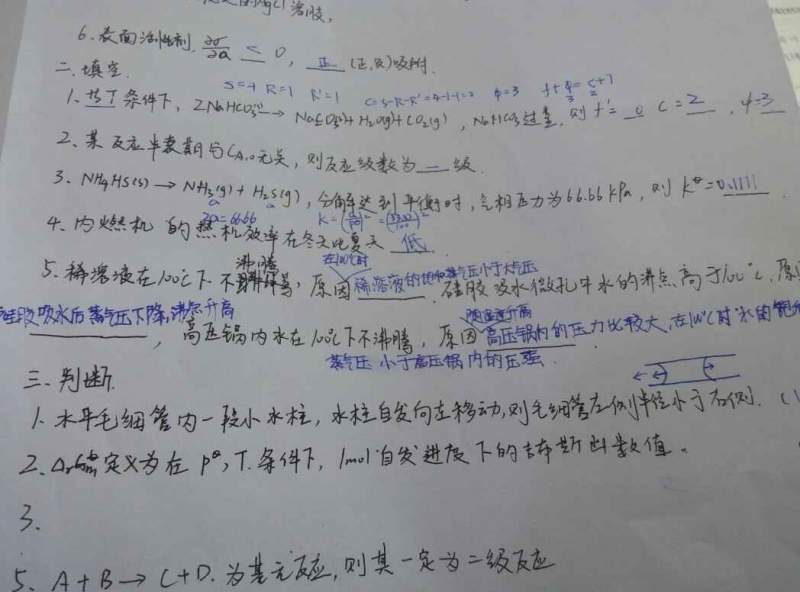 的AgCl溶胶,
6. 表面活性剂, ∂σ/∂a < 0, 正 (正,负)吸附.
二. 填空.
S=4 R=1 R'=1 C=S-R-R'=4-1-1=2 φ=3
1. 恒T条件下, 2NaHCO₃(s) → Na₂CO₃(s)+H₂O(g)+CO₂(g), NaHCO₃过量, 则 f'= 0 C = 2, φ=3
2. 某反应半衰期与CA,0无关, 则反应级数为 一 级.
3. NH₄HS(s) → NH₃(g) + H₂S(g), 分解达到平衡时, 气相压力为66.66 kPa, 则 K^θ = 0.1111
a a
2a=66.66
4. 内燃机 的热机效率在冬天比夏天 低
沸腾 在100℃时
5. 稀溶液在100℃下不沸腾, 原因 稀溶液的饱和蒸气压小于大气压. 硅胶吸水微孔中水的沸点高于100℃, 原
硅胶吸水后蒸气压下降,沸点升高
, 高压锅内水在100℃下不沸腾, 原因 高压锅内的压力比较大, 在100℃时 水的饱
蒸气压 小于高压锅内的压强.
三. 判断.
1. 水平毛细管内一段小水柱, 水柱自发向左移动, 则毛细管左侧半径小于右侧. (
2. 定义为在 p^θ, T. 条件下, 1mol 自发进度下的吉布斯函数值.
3.
5. A + B → C + D. 为基元反应, 则其一定为二级反应